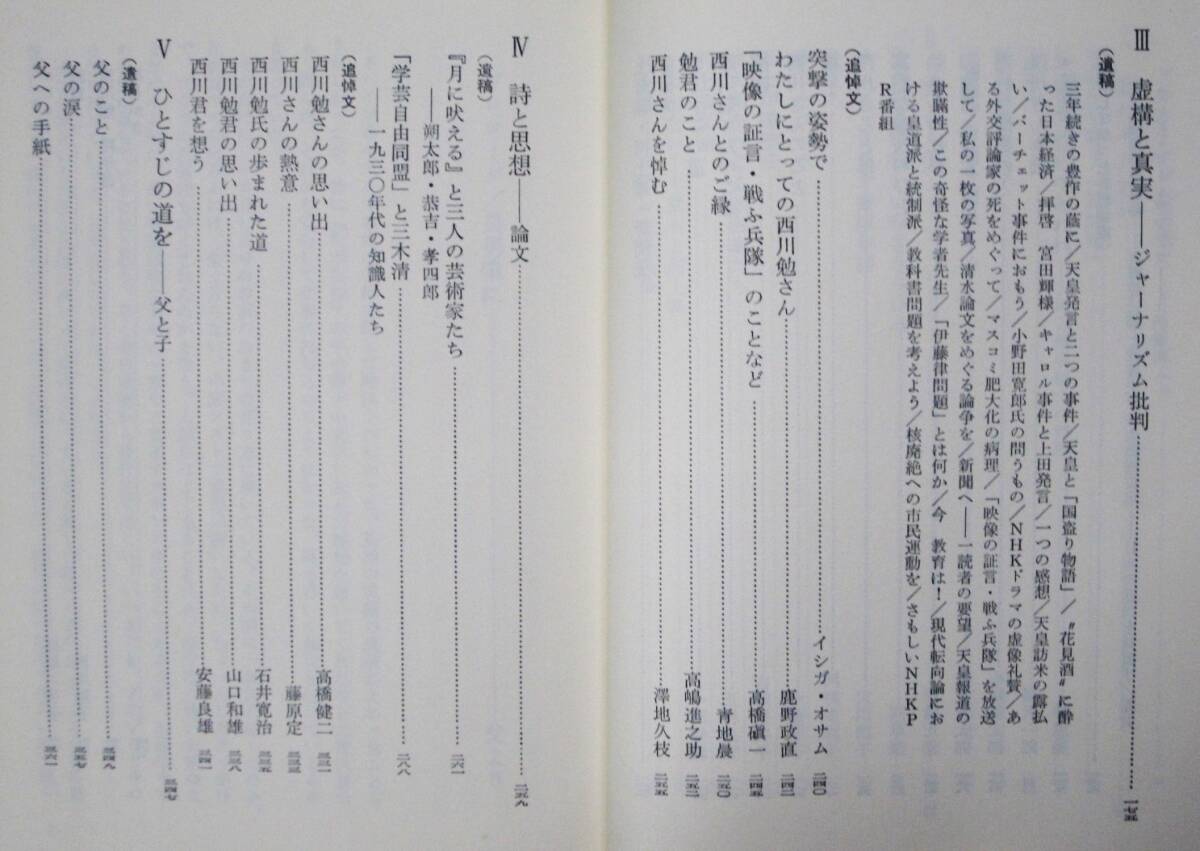 Ⅲ 虚構と真実――ジャーナリズム批判……一七五
（遺稿）
三年続きの豊作の蔭に／天皇発言と二つの事件／天皇と「国盗り物語」／〝花見酒〟に酔
った日本経済／拝啓 宮田輝様／キャロル事件と上田発言／一つの感想／天皇訪米の露払
い／バーチェット事件におもう／小野田寛郎氏の問うもの／ＮＨＫドラマの虚像礼賛／あ
る外交評論家の死をめぐって／マスコミ肥大化の病理／「映像の証言・戦ふ兵隊」を放送
して／私の一枚の写真／清水論文をめぐる論争を／新聞へ――一読者の要望／天皇報道の
欺瞞性／この奇怪な学者先生／「伊藤律問題」とは何か／今 教育は！／現代転向論にお
ける皇道派と統制派／教科書問題を考えよう／核廃絶への市民運動を／さもしいＮＨＫＰ
Ｒ番組
（追悼文）
突撃の姿勢で……イシガ・オサム 二四〇
わたしにとっての西川勉さん……鹿野政直 二四二
「映像の証言・戦ふ兵隊」のことなど……高橋槇一 二四五
西川さんとのご縁……青地晨 二五〇
勉君のこと……高嶋進之助 二五二
西川さんを悼む……澤地久枝 二五五
Ⅳ 詩と思想――論文……二五九
（遺稿）
『月に吠える』と三人の芸術家たち……二六一
――朔太郎・恭吉・孝四郎
「学芸自由同盟」と三木清……二八八
――一九三〇年代の知識人たち
（追悼文）
西川勉さんの思い出……高橋健二 三三一
西川さんの熱意……藤原定 三三三
西川勉氏の歩まれた道……石井寛治 三三五
西川勉君の思い出……山口和雄 三三八
西川君を想う……安藤良雄 三四一
Ⅴ ひとすじの道を――父と子……三四七
（遺稿）
父のこと……三四八
父の涙……三五七
父への手紙……三六一